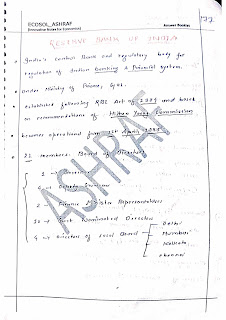 ECOSOL_ASHRAF
(Innovative Notes for Economics)
Answer Booklet
RESERVE BANK OF INDIA
India's Central Bank and regulatory body for
regulation of Indian Banking & Financial system.
under Ministry of Finance, GoI.
established following RBI Act of 1934 and based
on recommendations of Hilton Young Commission
becomes operational from 1st April 1935
21 members Board of Directors
1 → Governor
4 → Deputy Governor
2 → Finance Ministry Representatives
10 → Govt Nominated Directors
4 → Directors of Local Board
Delhi
Mumbai
Kolkata
Chennai
ASHRAF